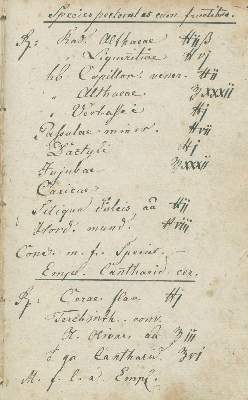 Species pectoral es cum fructibus.
R: Rad. Althaeae ℔ijß
" Liquiritiae ℔vj
hb Capillor: vener. ℔ij
" Althaeae ʒxxxii
" Verbasci ℔j
Passulae minor. ℔vii
Dactyli ℔j
Jujubae ʒxxxii
Caricae
Siliqua dulcis aa ℔ij
Hord: mund. ℔viii
Conc. m. f. Species.
Empl. Cantharid cer.
R: Cerae flav ℔j
Terebinth. com.
Ol. Olivar. aa ʒiii
Cantharid ʒvi
M. f. l. a. Empl.